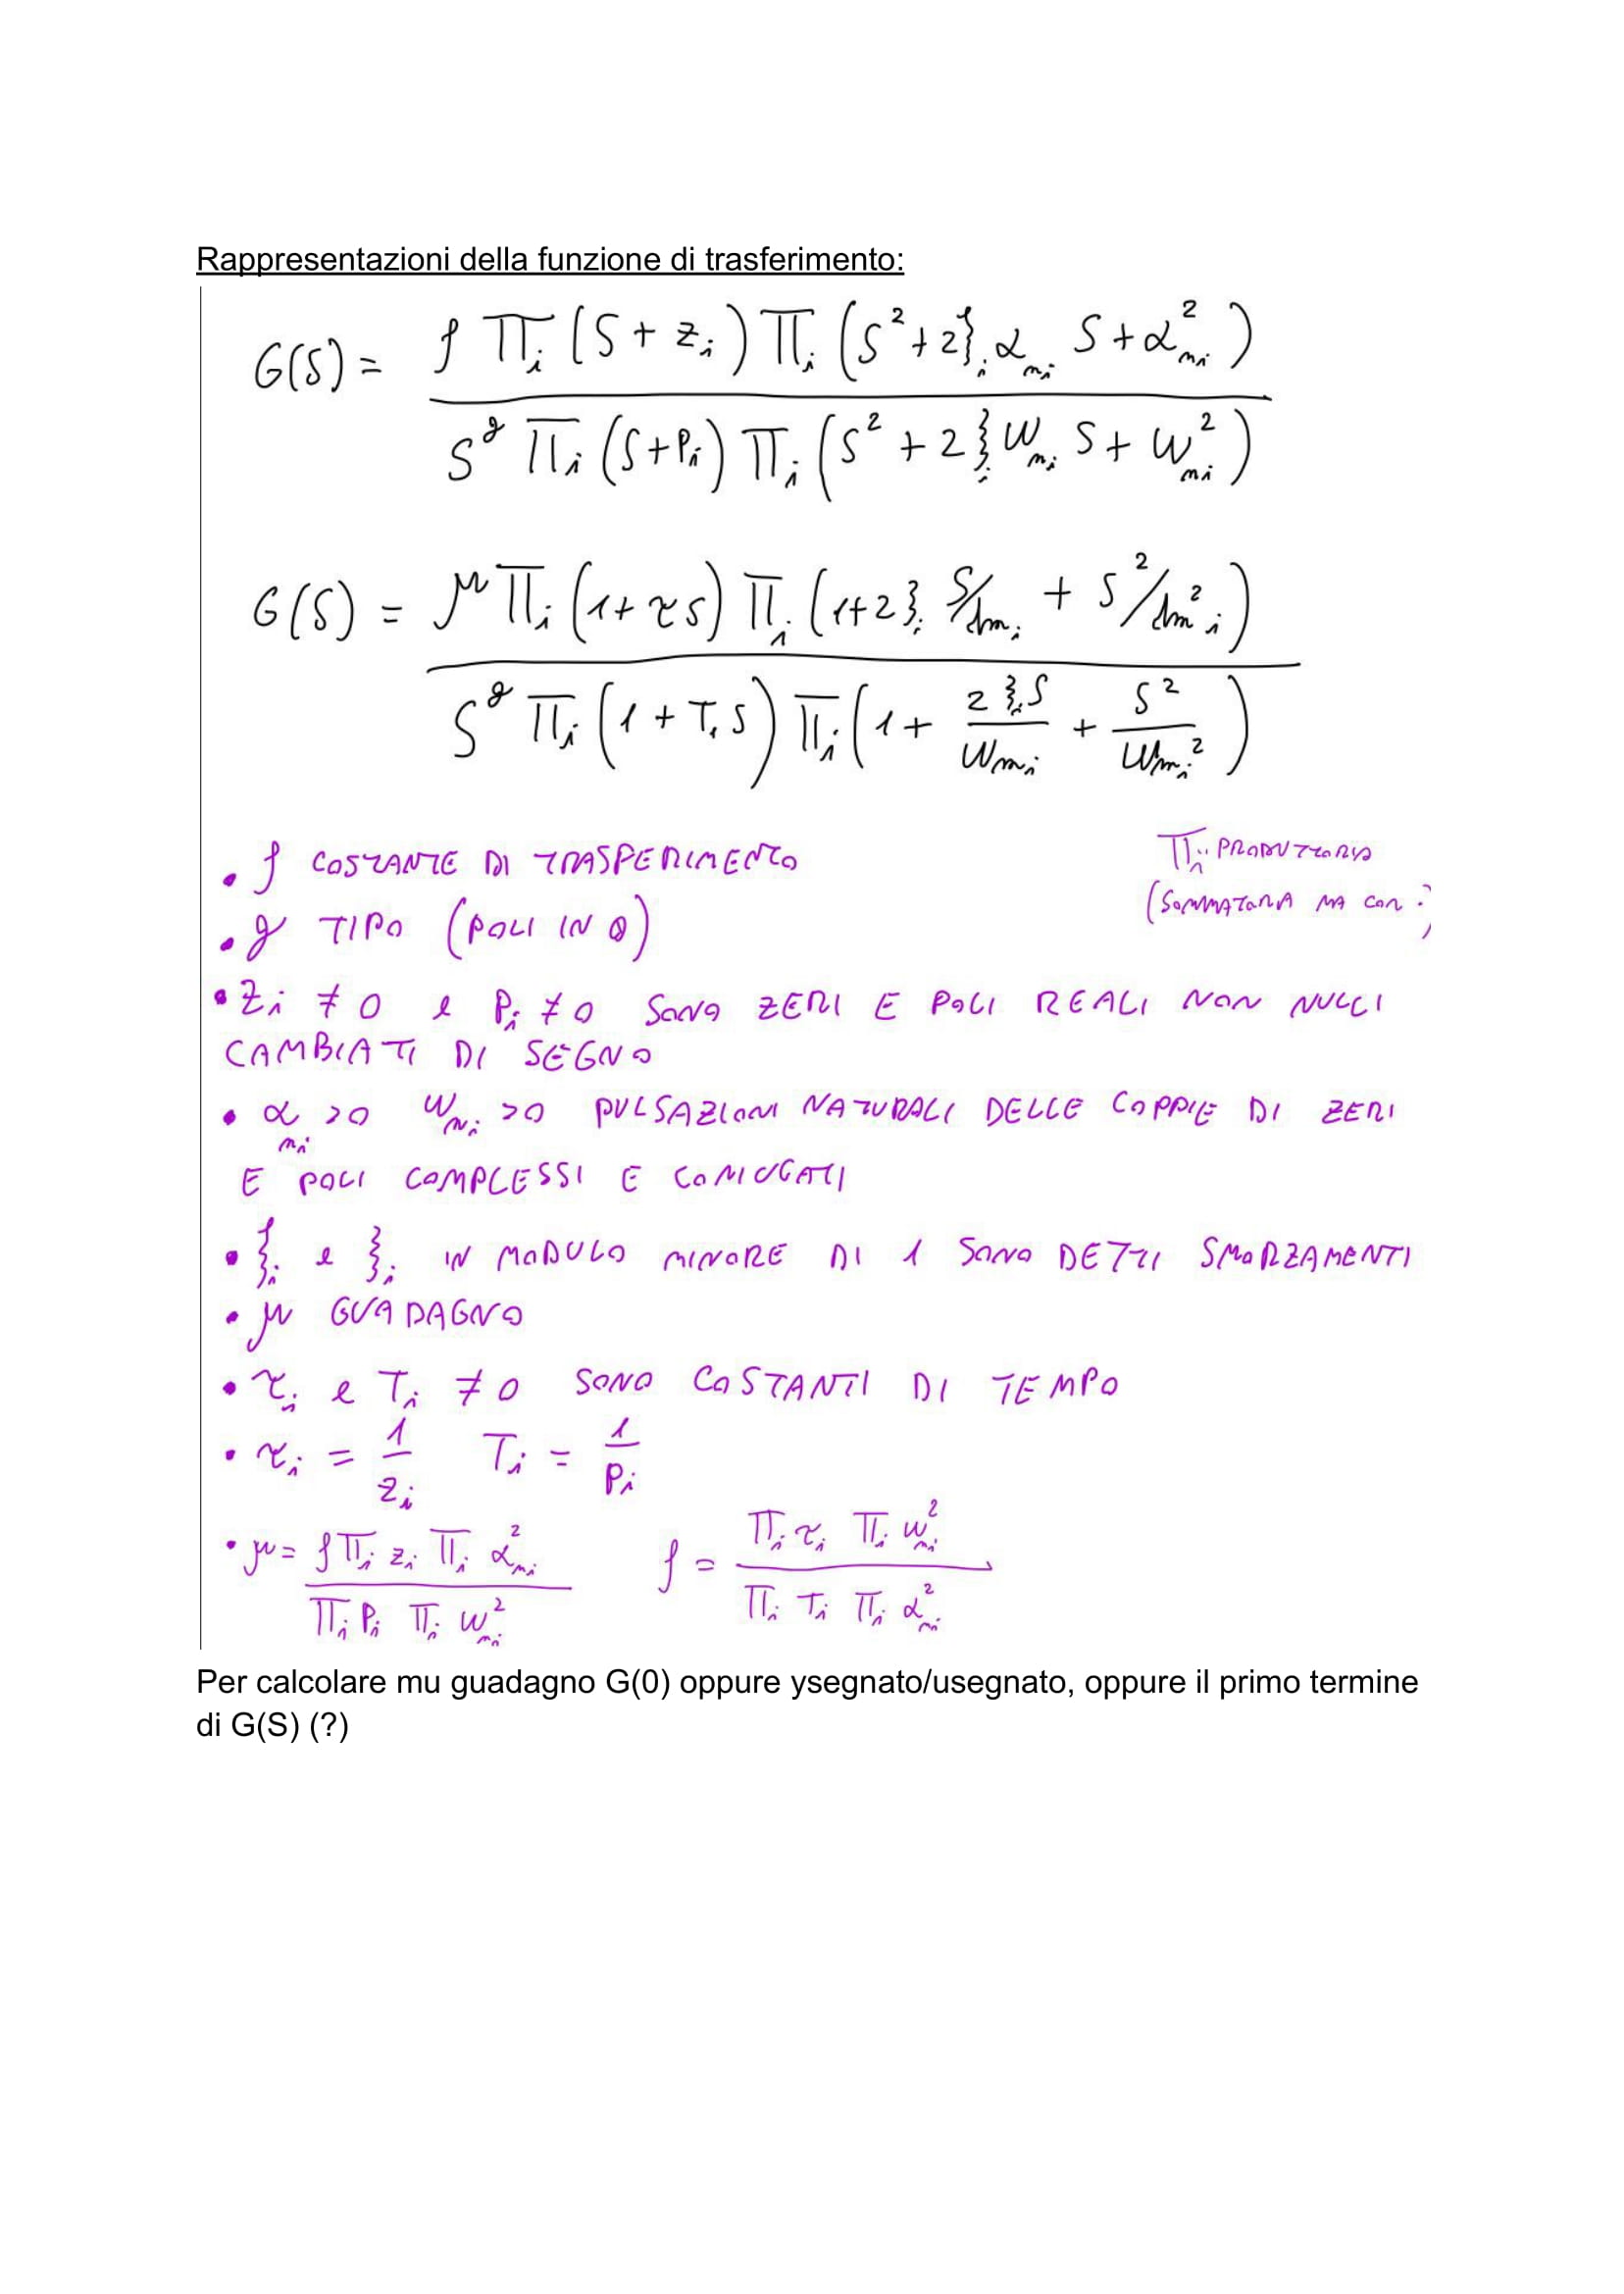 Rappresentazioni della funzione di trasferimento:
G(S) = ρ Π_i (S + z_i) Π_i (S² + 2ζ_i α_ni S + α_ni²) / S^g Π_i (S + P_i) Π_i (S² + 2ξ_i W_ni S + W_ni²)
G(S) = μ Π_i (1 + τ S) Π_i (1 + 2ζ_i S/α_ni + S²/α_ni²) / S^g Π_i (1 + T_i S) Π_i (1 + 2ξ_i S / W_ni + S² / W_ni²)
• ρ COSTANTE DI TRASFERIMENTO
Π_i: PRODUTTORIA
(SOMMATORIA MA CON ·)
• g TIPO (POLI IN 0)
• Z_i ≠ 0 e P_i ≠ 0 SONO ZERI E POLI REALI NON NULLI
CAMBIATI DI SEGNO
• α_ni >0 W_ni >0 PULSAZIONI NATURALI DELLE COPPIE DI ZERI
E POLI COMPLESSI E CONIUGATI
• ζ_i e ξ_i IN MODULO MINORE DI 1 SONO DETTI SMORZAMENTI
• μ GUADAGNO
• τ_i e T_i ≠ 0 SONO COSTANTI DI TEMPO
• τ_i = 1/z_i T_i = 1/P_i
• μ = ρ Π_i z_i Π_i α_ni² / Π_i P_i Π_i W_ni² ρ = Π_i τ_i Π_i W_ni² / Π_i T_i Π_i α_ni²
Per calcolare mu guadagno G(0) oppure ysegnato/usegnato, oppure il primo termine
di G(S) (?)